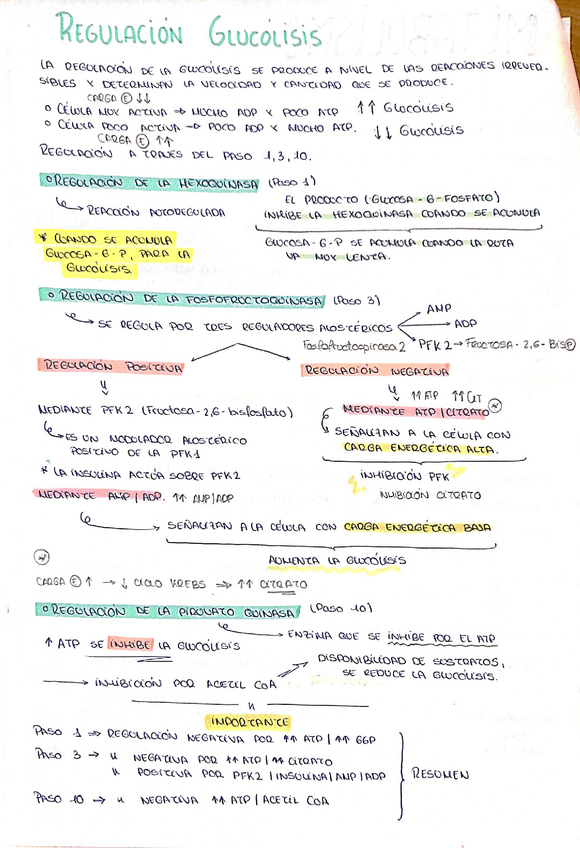 REGULACIÓN GLUCÓLISIS
LA REGULACIÓN DE LA GLUCÓLISIS SE PRODUCE A NIVEL DE LAS REACCIONES IRREVER-
SIBLES Y DETERMINAN LA VELOCIDAD Y CANTIDAD QUE SE PRODUCE.
CARGA Ⓔ ↓↓
○ CÉLULA MUY ACTIVA → MUCHO ADP Y POCO ATP ↑↑ GLUCÓLISIS
○ CÉLULA POCO ACTIVA → POCO ADP Y MUCHO ATP. ↓↓ GLUCÓLISIS
CARGA Ⓔ ↑↑
REGULACIÓN A TRAVÉS DEL PASO 1, 3, 10.
○ REGULACIÓN DE LA HEXOQUINASA (PASO 1)
↳ REACCIÓN AUTOREGULADA
EL PRODUCTO (GLUCOSA-6-FOSFATO)
INHIBE LA HEXOQUINASA CUANDO SE ACUMULA
GLUCOSA-6-P SE ACUMULA CUANDO LA RUTA
VA MUY LENTA.
* CUANDO SE ACUMULA
GLUCOSA-6-P, PARA LA
GLUCÓLISIS.
○ REGULACIÓN DE LA FOSFOFRUCTOQUINASA (PASO 3)
↳ SE REGULA POR TRES REGULADORES ALOSTÉRICOS
→ AMP
→ ADP
→ PFK2 → FRUCTOSA-2,6-BisⓅ
REGULACIÓN POSITIVA
MEDIANTE PFK2 (Fructosa-2,6-bisfosfato)
↳ ES UN MODULADOR ALOSTÉRICO
POSITIVO DE LA PFK1
* LA INSULINA ACTÚA SOBRE PFK2
MEDIANTE AMP/ADP. ↑↑ AMP/ADP
↳ SEÑALIZAN A LA CÉLULA CON CARGA ENERGÉTICA BAJA
AUMENTA LA GLUCÓLISIS
REGULACIÓN NEGATIVA
↑↑ ATP ↑↑ CIT
MEDIANTE ATP/CITRATO *
↳ SEÑALIZAN A LA CÉLULA CON
CARGA ENERGÉTICA ALTA.
INHIBICIÓN PFK
INHIBICIÓN CITRATO
*
CARGA Ⓔ ↑ → ↓ CICLO KREBS ⇒ ↑↑ CITRATO
○ REGULACIÓN DE LA PIRUVATO QUINASA (PASO 10)
↳ ENZIMA QUE SE INHIBE POR EL ATP
↑ ATP SE INHIBE LA GLUCÓLISIS
→ INHIBICIÓN POR ACETIL COA
→ DISPONIBILIDAD DE SUSTRATOS,
SE REDUCE LA GLUCÓLISIS.
IMPORTANTE
PASO 1 ⇒ REGULACIÓN NEGATIVA POR ↑↑ ATP / ↑↑ G6P
PASO 3 → " NEGATIVA POR ↑↑ ATP / ↑↑ CITRATO
" POSITIVA POR PFK2 / INSULINA / AMP / ADP
PASO 10 → " NEGATIVA ↑↑ ATP / ACETIL COA
RESUMEN